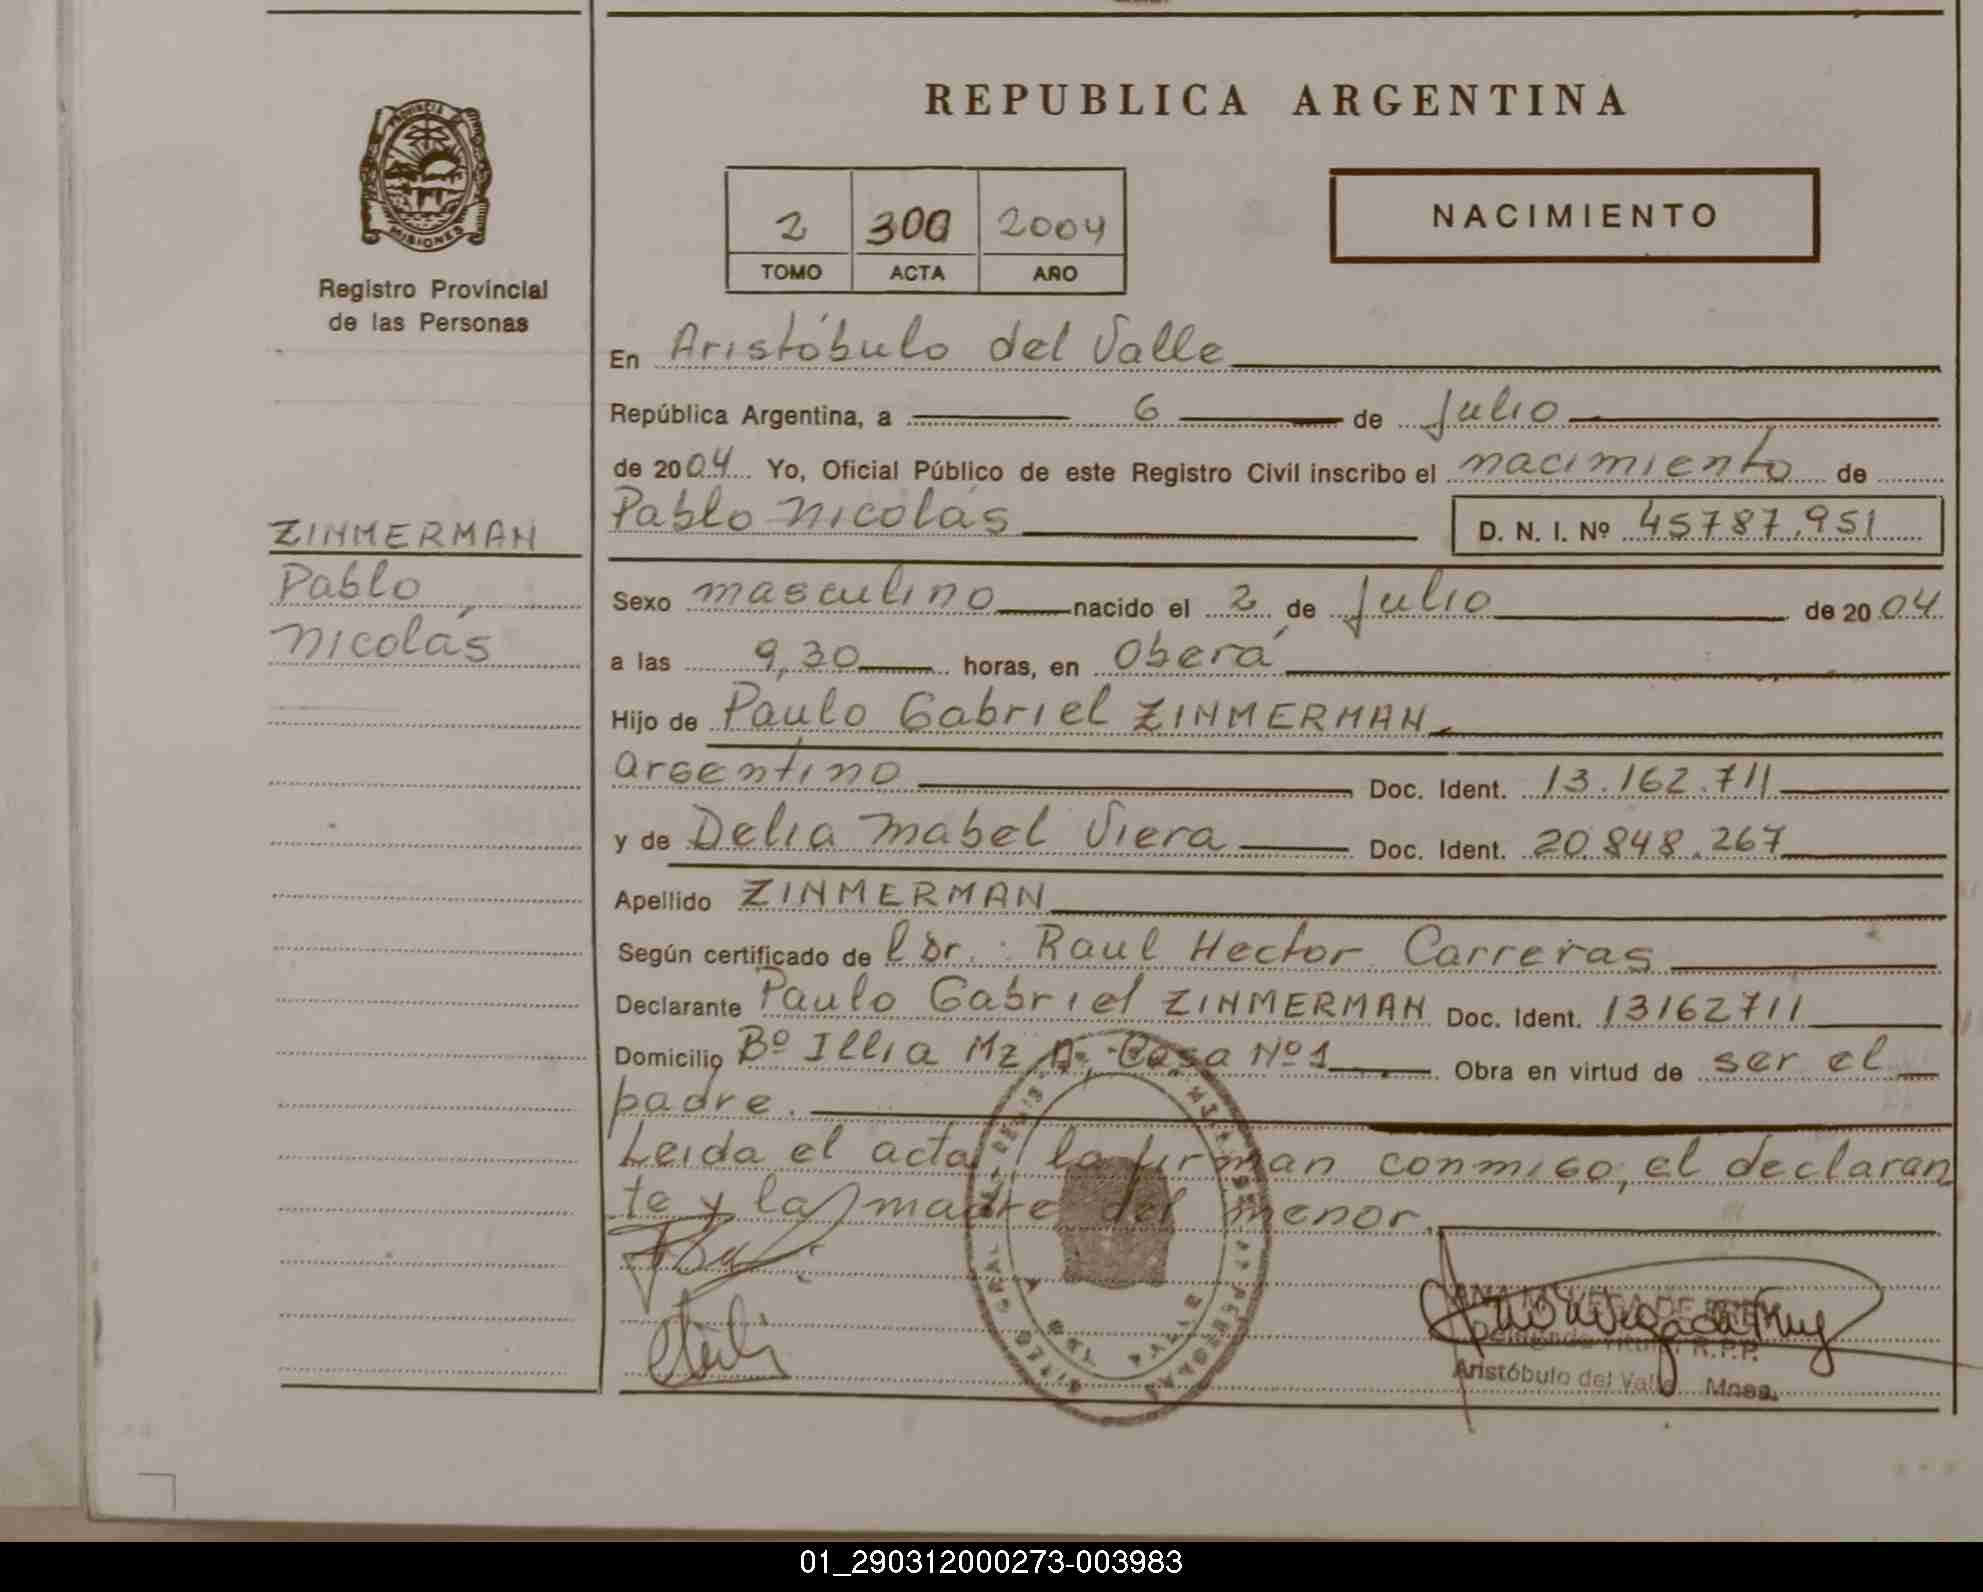 REPUBLICA ARGENTINA
PROVINCIA
MISIONES
Registro Provincial
de las Personas
2 300 2004
TOMO ACTA AÑO
NACIMIENTO
En Aristóbulo del Valle
República Argentina, a 6 de Julio
de 2004 Yo, Oficial Público de este Registro Civil inscribo el nacimiento de
Pablo Nicolás D. N. I. Nº 45787.951
ZINMERMAN
Pablo
Nicolás
Sexo masculino nacido el 2 de Julio de 2004
a las 9,30 horas, en Oberá
Hijo de Paulo Gabriel ZINMERMAN
argentino Doc. Ident. 13.162.711
y de Delia Mabel Viera Doc. Ident. 20.848.267
Apellido ZINMERMAN
Según certificado de l Dr. : Raul Hector Carreras
Declarante Paulo Gabriel ZINMERMAN Doc. Ident. 13162711
Domicilio Bº Illia Mz A, Casa Nº1 Obra en virtud de ser el
padre.
Leida el acta, la firman conmigo, el declaran
te y la madre del menor.
R.P.P.
Aristóbulo del Valle Mnes.
01_290312000273-003983